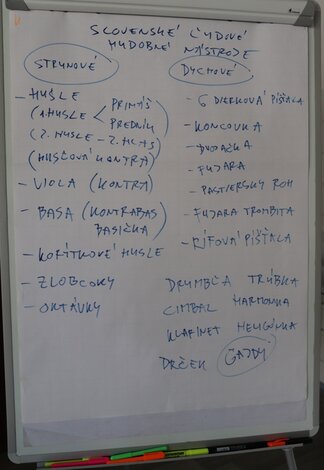 SLOVENSKÉ ĽUDOVÉ
HUDOBNÉ NÁSTROJE
STRUNOVÉ
- HUSLE
(1. HUSLE < PRIMÁŠ
PREDNÍK)
(2. HUSLE - 2. HLAS)
(HUSĽOVÁ KONTRA)
- VIOLA (KONTRA)
- BASA (KONTRABAS
BASIČKA)
- KORÝTKOVÉ HUSLE
- ZLOBCOKY
- OKTÁVKY
DYCHOVÉ
- 6 DIERKOVÁ PÍŠŤALA
- KONCOVKA
- DVOJAČKA
- FUJARA
- PASTIERSKY ROH
- FUJARA TROMBITA
- RÍFOVÁ PÍŠŤALA
DRUMBĽA TRÚBKA
CIMBAL HARMONIKA
KLARINET HELIGÓNKA
DRČEK GAJDY